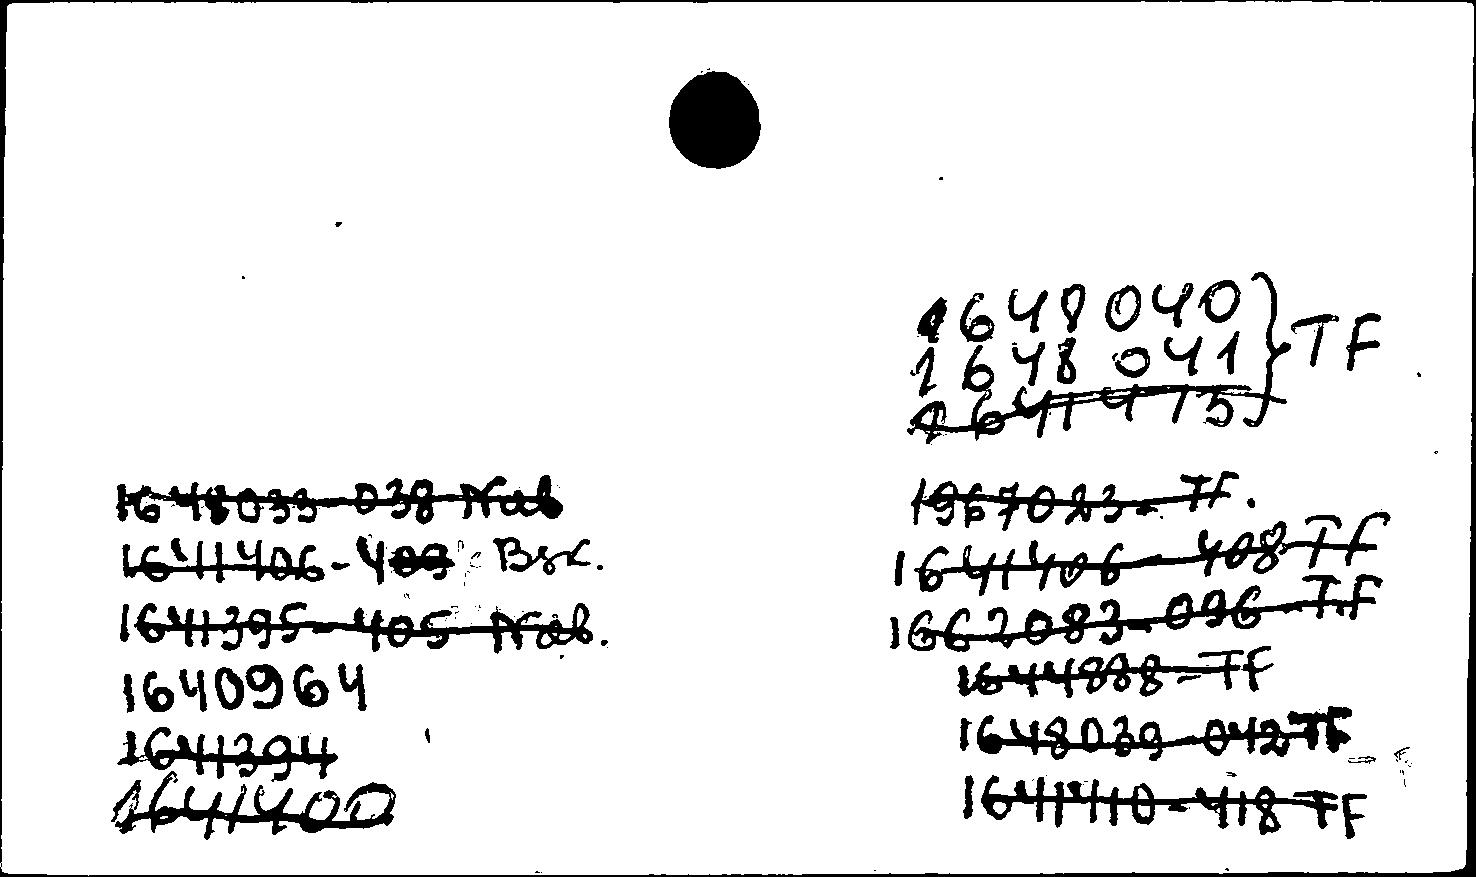 1648040
1648041 } TF
1641415
1648033-038 Nab
1641406-409 Bsk.
1641395-405 Nab.
1640964
1641394
1641400
1967023-TF.
1641406-408 TF
1662083-096-TF
1644888-TF
1648039-042 TF
1641410-418 TF